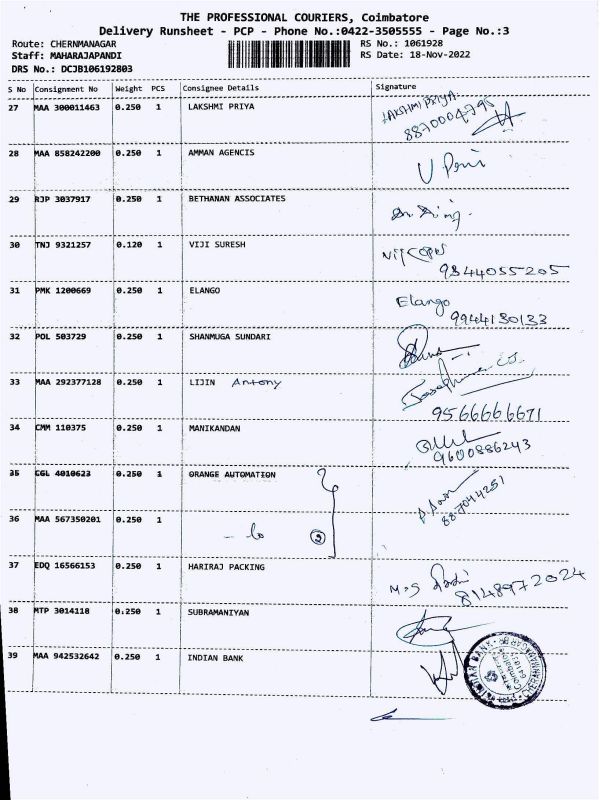 THE PROFESSIONAL COURIERS, Coimbatore
Delivery Runsheet - PCP - Phone No.:0422-3505555 - Page No.:3
Route: CHERNMANAGAR RS No.: 1061928
Staff: MAHARAJAPANDI RS Date: 18-Nov-2022
DRS No.: DCJB106192803
S No Consignment No Weight PCS Consignee Details Signature
27 MAA 300011463 0.250 1 LAKSHMI PRIYA LAKSHMI PRIYA
8870004795
28 MAA 858242200 0.250 1 AMMAN AGENCIS
29 RJP 3037917 0.250 1 BETHANAN ASSOCIATES
30 TNJ 9321257 0.120 1 VIJI SURESH
9344055205
31 PMK 1200669 0.250 1 ELANGO Elango
9944130133
32 POL 503729 0.250 1 SHANMUGA SUNDARI
33 MAA 292377128 0.250 1 LIJIN Antony
9566666671
34 CMM 110375 0.250 1 MANIKANDAN
9600886243
35 CGL 4010623 0.250 1 ORANGE AUTOMATION
887044251
36 MAA 567350201 0.250 1
- to 2
37 EDQ 16566153 0.250 1 HARIRAJ PACKING
8148972024
38 MTP 3014118 0.250 1 SUBRAMANIYAN
39 MAA 942532642 0.250 1 INDIAN BANK